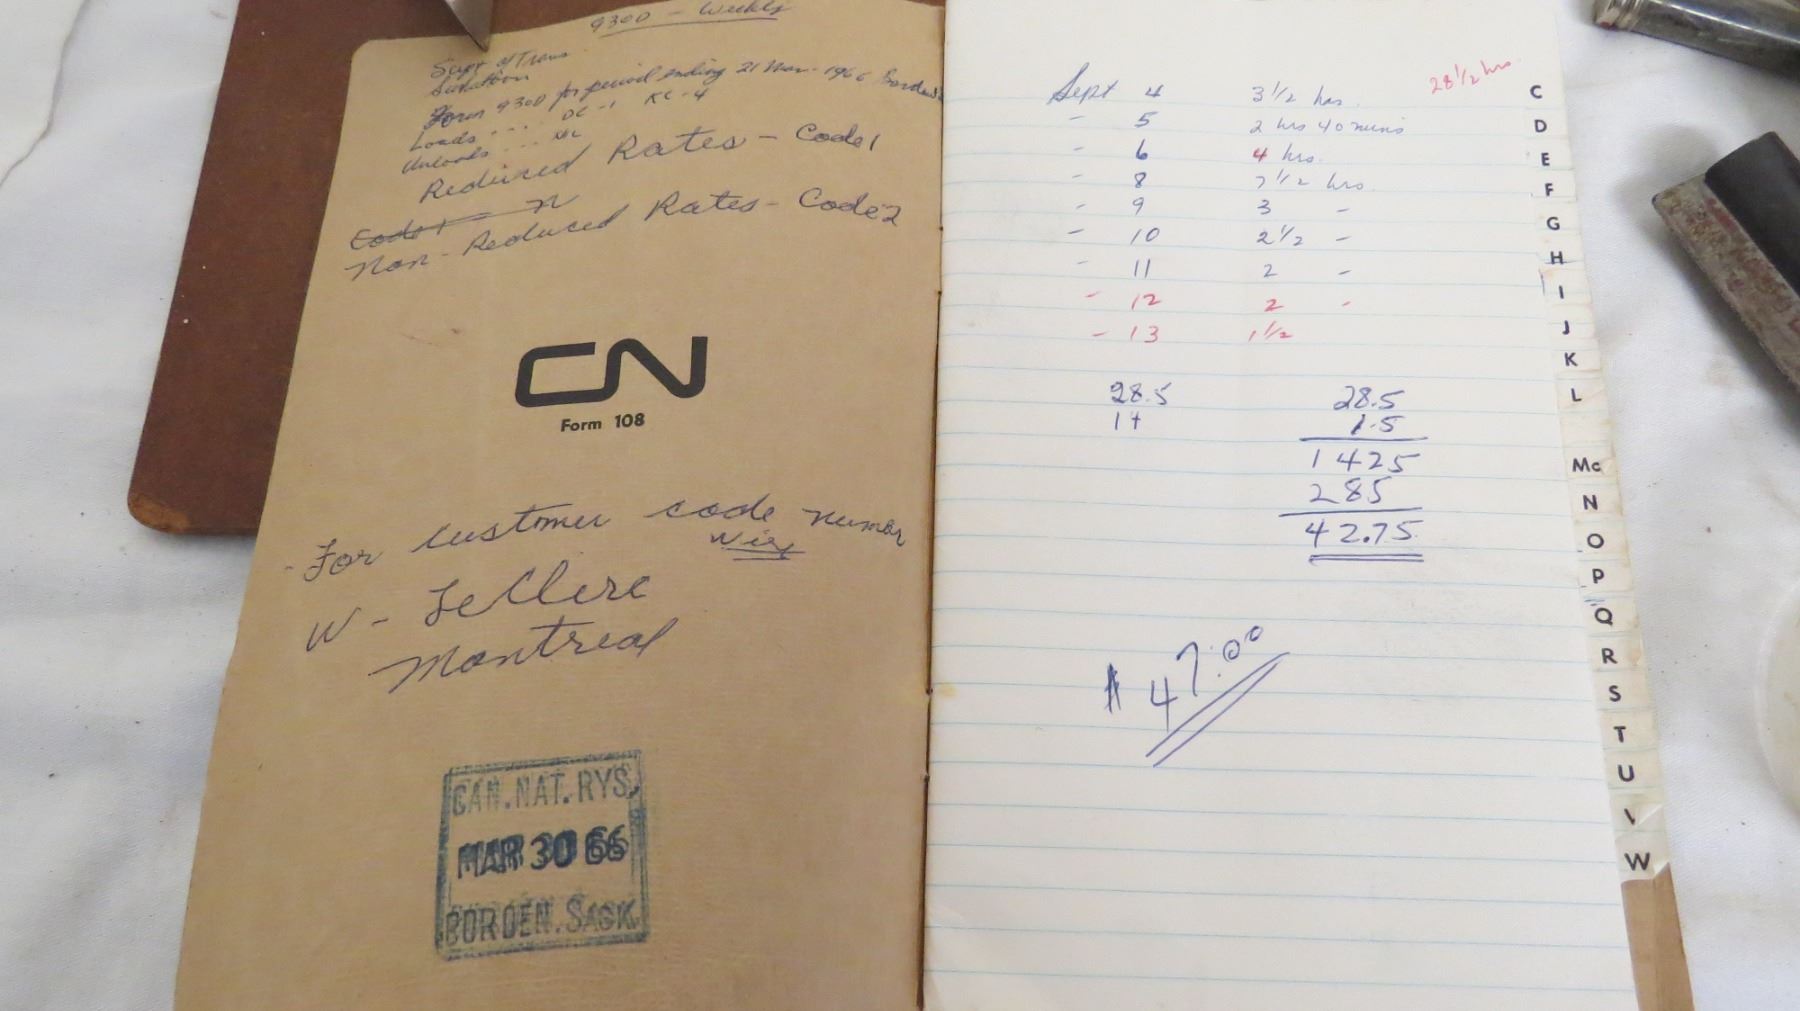 9300 - Weekly
Supt of Trans
Saskatoon
Form 9300 for period ending 21 Mar. 1966 Borden
Loads ... DC-1 KC-4
Unloads ... NIL
Reduced Rates - Code 1
Code 1
Non-Reduced Rates - Code 2
CN
Form 108
- For customer code numbr
wire
W - LeClerc
Montreal
CAN. NAT. RYS.
MAR 30 66
BORDEN. SASK.
28 1/2 hrs
Sept 4 3 1/2 hrs.
- 5 2 hrs 40 mins
- 6 4 hrs.
- 8 7 1/2 hrs.
- 9 3 -
- 10 2 1/2 -
- 11 2 -
- 12 2 -
- 13 1 1/2
28.5
1+
28.5
1.5
1425
285
42.75
$47.00
C
D
E
F
G
H
I
J
K
L
Mc
N
O
P
Q
R
S
T
U
V
W